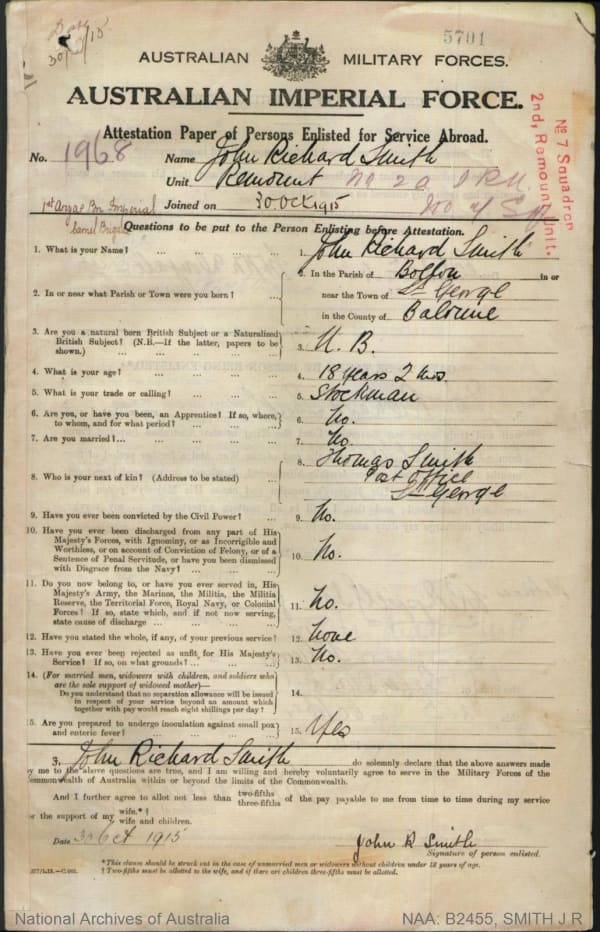 5701
30/10/15
AUSTRALIAN MILITARY FORCES.
AUSTRALIAN IMPERIAL FORCE.
Attestation Paper of Persons Enlisted for Service Abroad.
No. 1968 Name John Richard Smith
Unit Remount No 2a
1st Imperial Joined on 30 OCT 1915
Camel Brigade
No 7 Squadron
2nd, Remount Unit.
Questions to be put to the Person Enlisting before Attestation.
1. What is your Name? ... ... ... ... 1. John Richard Smith
2. In or near what Parish or Town were you born? ... 2. In the Parish of Bolfon in or
near the Town of St George
in the County of Balonne
3. Are you a natural born British Subject or a Naturalized
British Subject? (N.B.—If the latter, papers to be
shown.) ... ... ... ... 3. N. B.
4. What is your age? ... ... ... ... 4. 18 Years 2 mos.
5. What is your trade or calling? ... ... ... 5. Stockman
6. Are you, or have you been, an Apprentice? If so, where,
to whom, and for what period? ... ... ... 6. No.
7. Are you married?... ... ... ... 7. No.
8. Who is your next of kin? (Address to be stated) ... 8. Thomas Smith
Post Office
St George
9. Have you ever been convicted by the Civil Power? ... 9. No.
10. Have you ever been discharged from any part of His
Majesty's Forces, with Ignominy, or as Incorrigible and
Worthless, or on account of Conviction of Felony, or of a
Sentence of Penal Servitude, or have you been dismissed
with Disgrace from the Navy? ... ... ... 10. No.
11. Do you now belong to, or have you ever served in, His
Majesty's Army, the Marines, the Militia, the Militia
Reserve, the Territorial Force, Royal Navy, or Colonial
Forces? If so, state which, and if not now serving,
state cause of discharge ... ... ... 11. No.
12. Have you stated the whole, if any, of your previous service? 12. None
13. Have you ever been rejected as unfit for His Majesty's
Service? If so, on what grounds? ... ... ... 13. No.
14. (For married men, widowers with children, and soldiers who
are the sole support of widowed mother)—
Do you understand that no separation allowance will be issued
in respect of your service beyond an amount which
together with pay would reach eight shillings per day? 14.
5. Are you prepared to undergo inoculation against small pox
and enteric fever? ... ... ... ... 15. Yes
3. John Richard Smith do solemnly declare that the above answers made
by me to the above questions are true, and I am willing and hereby voluntarily agree to serve in the Military Forces of the
Commonwealth of Australia within or beyond the limits of the Commonwealth.
And I further agree to allot not less than two-fifths three-fifths of the pay payable to me from time to time during my service
for the support of my wife.* † wife and children.
Date 30 Oct 1915 John R Smith
Signature of person enlisted.
*This clause should be struck out in the case of unmarried men or widowers without children under 18 years of age.
† Two-fifths must be allotted to the wife, and if there are children three-fifths must be allotted.
National Archives of Australia NAA: B2455, SMITH J R